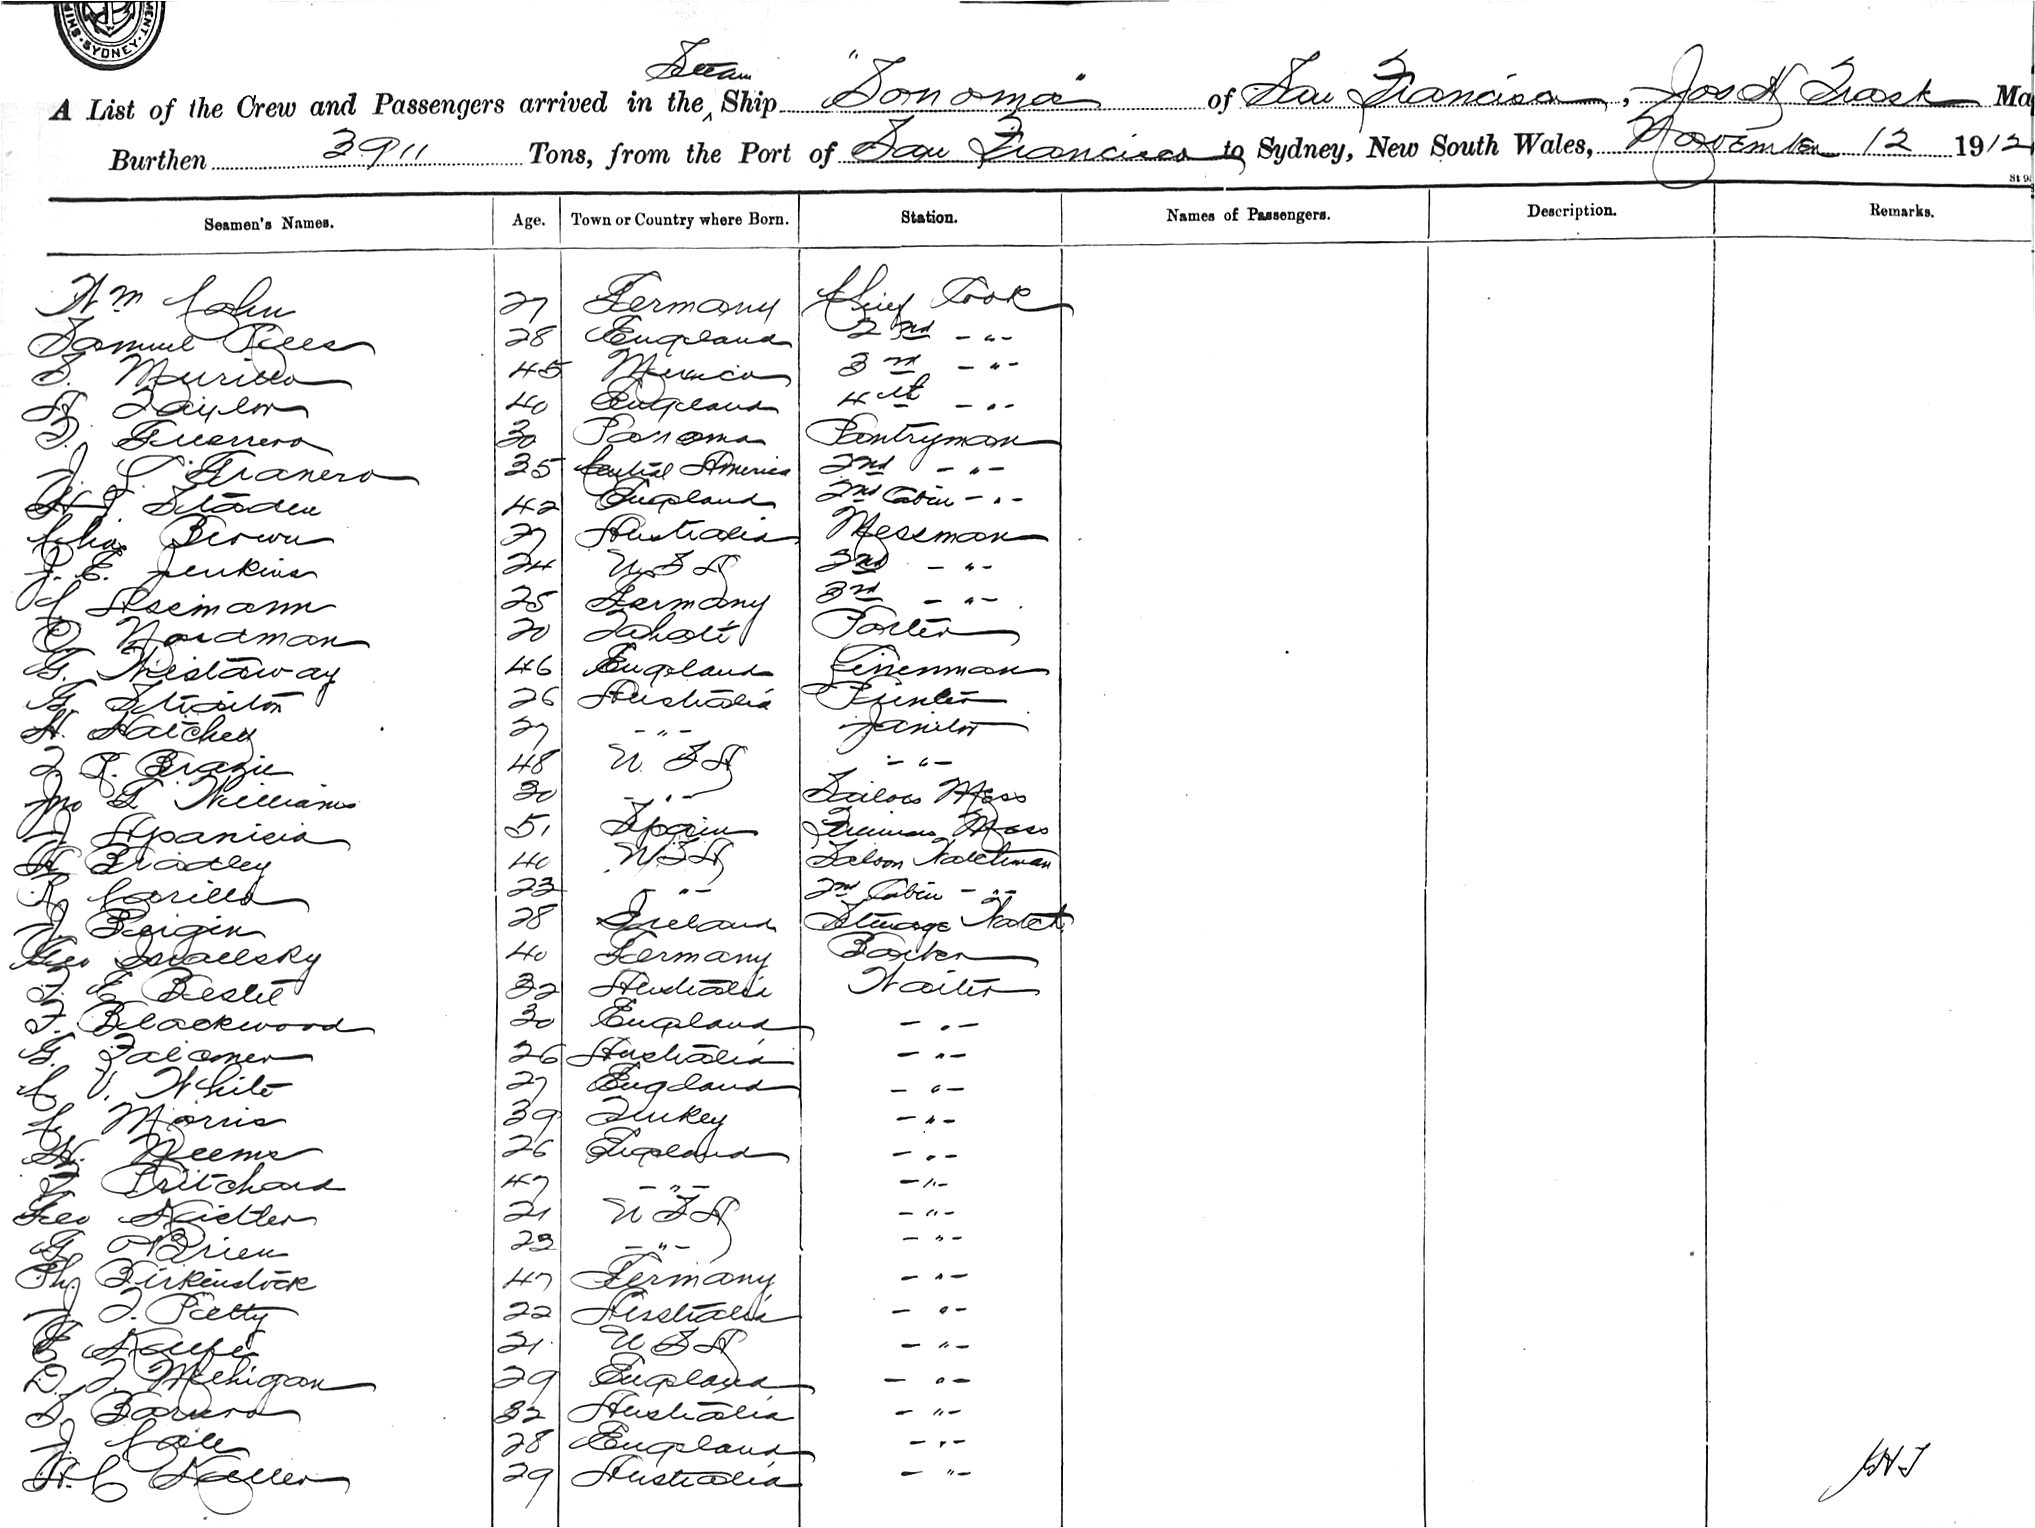 SYDNEY
Steam
A List of the Crew and Passengers arrived in the Ship "Sonoma" of San Francisco, Jos H Trask Ma
Burthen 3911 Tons, from the Port of San Francisco to Sydney, New South Wales, November 12 1912
Seamen's Names. Age. Town or Country where Born. Station. Names of Passengers. Description. Remarks.
Wm Cohn 27 Germany Chief Cook
Samuel Rees 28 England 2nd -"-
S. Murillo 45 Mexico 3rd -"-
A Taylor 40 England 4th -"-
D. Guerrero 30 Panama Pantryman
J. S. Granero 35 Central America 2nd -"-
H J Staden 42 England 2nd Cabin -"-
Chas Brown 27 Australia Messman
J. E. Jenkins 24 USA 2nd -"-
C Assmann 25 Germany 3rd -"-
O. Nordman 20 Tahiti Porter
G. Wistaway 46 England Linenman
G. Straiton 26 Australia Printer
H. Hatchey 27 -"- Janitor
48 USA -"-
Jno G Williams 30 -"- Sailors Mess
J Aparicia 51 Spain Firemens Mess
H Bradley 40 USA Saloon Watchman
R Carillo 23 -"- 2nd Cabin -"-
J Bergin 28 Ireland Steerage Watch
Geo Israelsky 40 Germany Barber
F. E Beslit 32 Australia Waiter
F. Blackwood 30 England -"-
G. Falconer 26 Australia -"-
C V. White 27 England -"-
C Morris 39 Turkey -"-
H. Neems 26 England -"-
F Pritchard 47 -"- -"-
Geo Richter 21 USA -"-
G. O'Brien 23 -"- -"-
Th. Birkenstock 47 Germany -"-
J. T. Petty 22 Australia -"-
E 21 USA -"-
D. J. Mehigan 29 England -"-
S. 32 Australia -"-
J Cole 28 England -"-
H. C Keller 29 Australia -"-
JHT